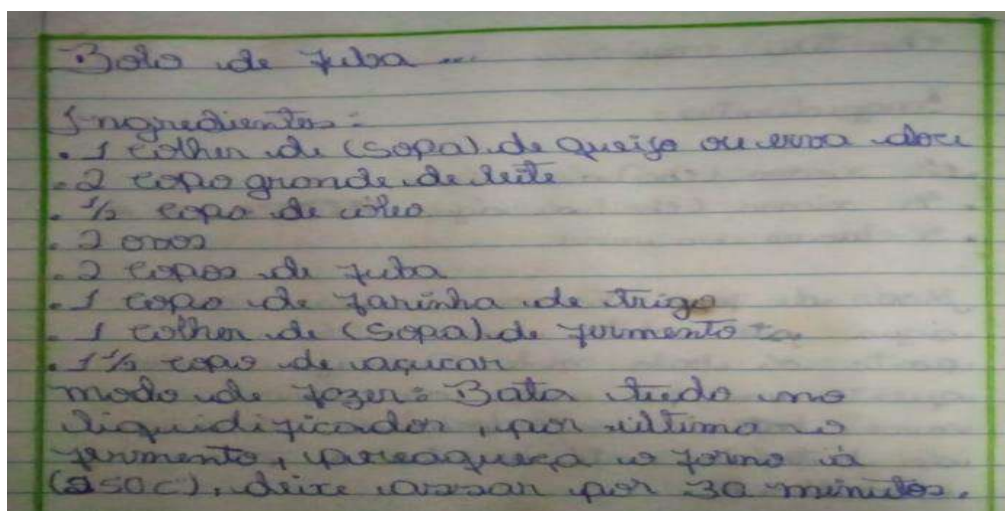 Bolo de fuba ...
Ingredientes:
. 1 colher de (sopa) de queijo ou erva doce
. 2 copo grande de leite
. 1/2 copo de óleo
. 2 ovos
. 2 copos de fuba
. 1 copo de farinha de trigo
. 1 colher de (sopa) de fermento
. 1 1/2 copo de açucar
modo de fazer: Bata tudo no
liquidificador, por ultimo o
fermento, preaqueça o forno á
(250c), deixe assar por 30 minutos.